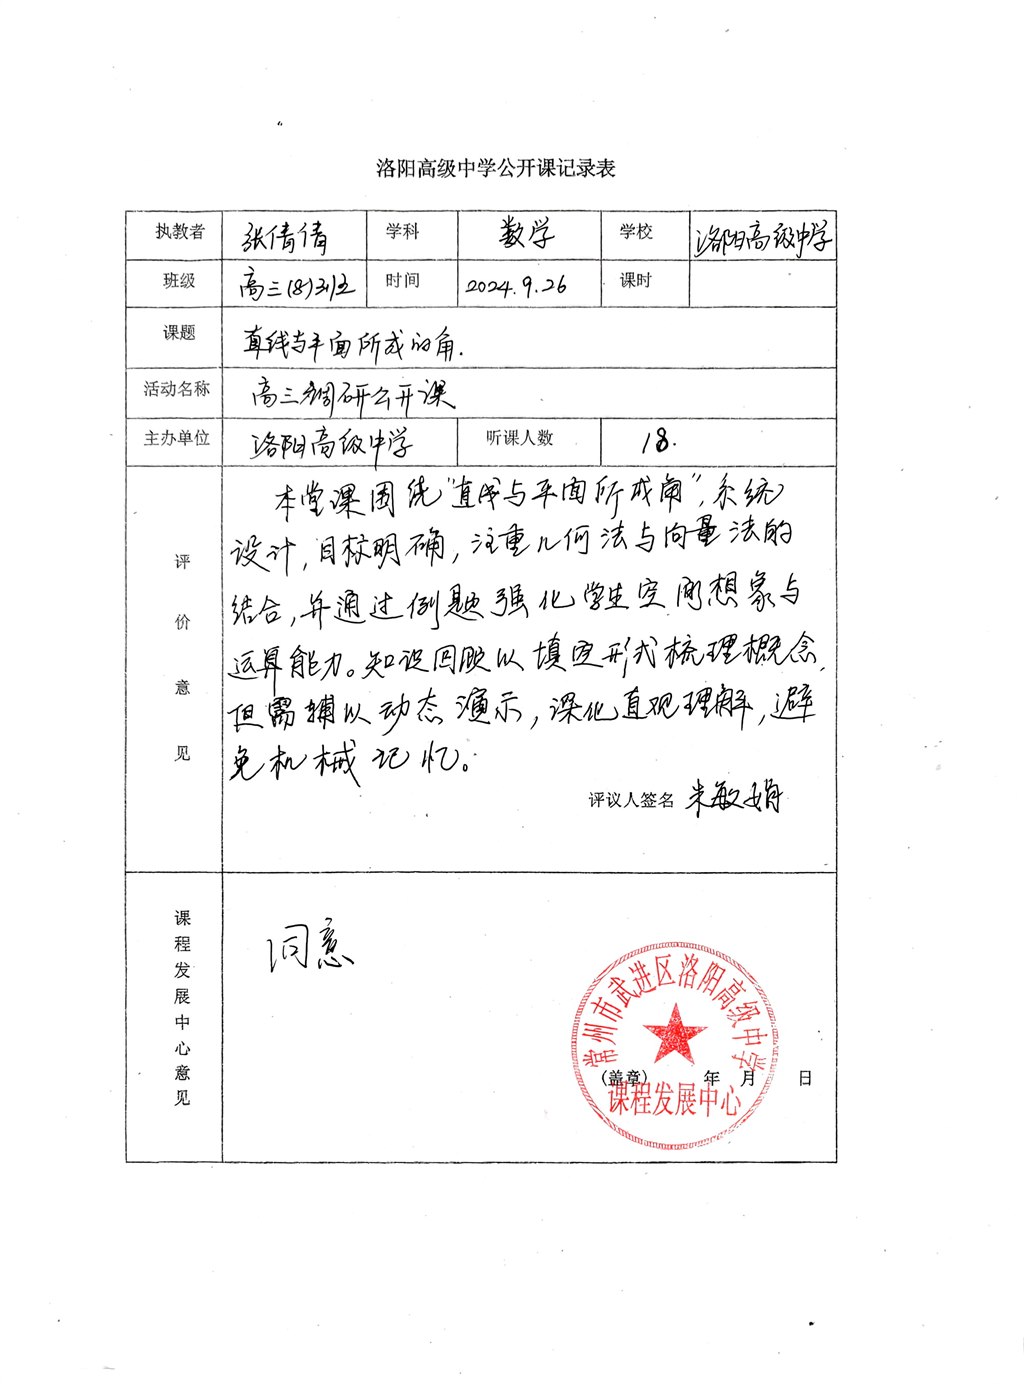 洛阳高级中学公开课记录表
执教者 张倩倩 学科 数学 学校 洛阳高级中学
班级 高三(8)班 时间 2024.9.26 课时
课题 直线与平面所成的角.
活动名称 高三调研公开课
主办单位 洛阳高级中学 听课人数 18.
评价意见
本堂课围绕“直线与平面所成角”,系统
设计,目标明确,注重几何法与向量法的
结合,并通过例题强化学生空间想象与
运算能力。知识回顾以填空形式梳理概念,
但需辅以动态演示,深化直观理解,避
免机械记忆。
评议人签名 朱敏娟
课程发展中心意见
同意
常州市武进区洛阳高级中学
(盖章) 年 月 日
课程发展中心